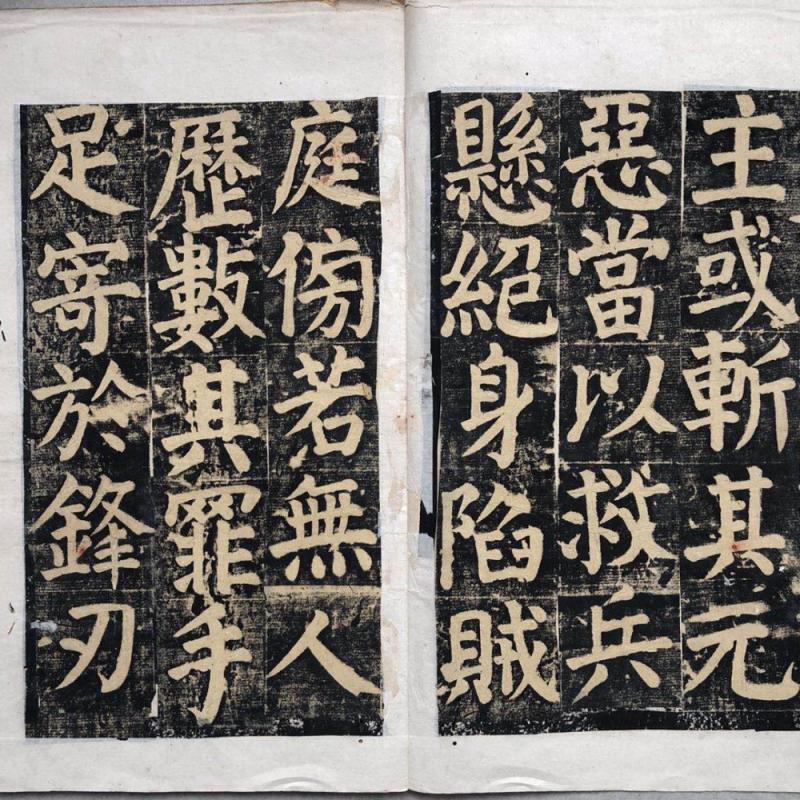 主或斬其元
惡當以救兵
懸絕身陷賊
庭傍若無人
歷數其罪手
足寄於鋒刃